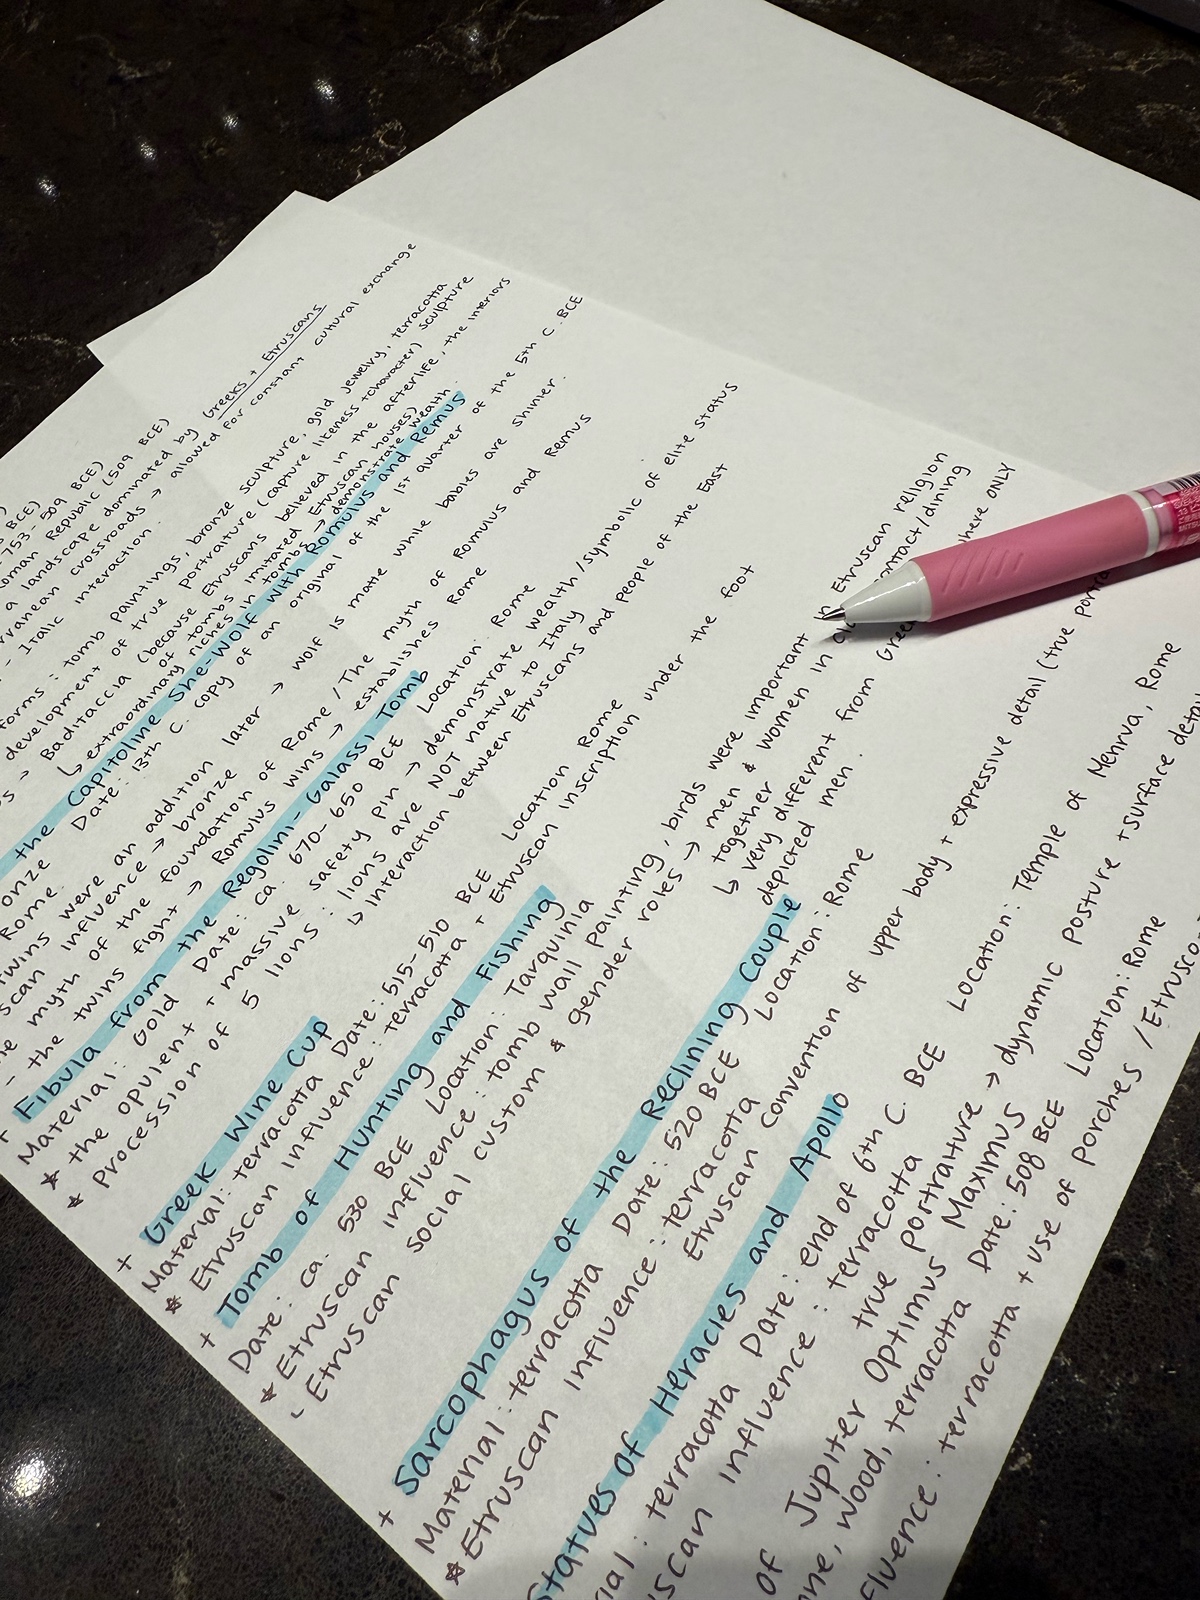 BCE)
753-509 BCE)
Roman Republic (509 BCE)
a landscape dominated by Greeks + Etruscans
crossroads → allowed for constant cultural exchange
- Italic interaction.
forms: tomb paintings, bronze sculpture, gold jewelry, terracotta
development of true portraiture (capture likeness + character) sculpture
→ Baditaccia (because Etruscans believed in the afterlife, the interiors
of tombs imitated Etruscan houses)
↳ extraordinary riches in tombs → demonstrate wealth.
the Capitoline She-Wolf with Romulus and Remus
onze Date: 13th C. copy of an original of the 1st quarter of the 5th C. BCE
Rome.
twins were an addition later → wolf is matte while babies are shinier.
scan influence → bronze
he myth of the foundation of Rome / The myth of Romulus and Remus
- the twins fight → Romulus wins → establishes Rome
+ Fibula from the Regolini-Galassi Tomb
Material: Gold Date: ca. 670-650 BCE Location: Rome
* the opulent + massive safety pin → demonstrate wealth/symbolic of elite status
* Procession of 5 lions: lions are NOT native to Italy
↳ Interaction between Etruscans and people of the East
+ Greek Wine Cup
Material: terracotta Date: 515-510 BCE Location: Rome
* Etruscan influence: terracotta + Etruscan inscription under the foot
+ Tomb of Hunting and Fishing
Date: ca. 530 BCE Location: Tarquinia
* Etruscan influence: tomb wall painting, birds were important in Etruscan religion
- Etruscan social custom & gender roles → men & women in contact/dining
together
↳ very different from Greek where ONLY
depicted men.
+ Sarcophagus of the Reclining Couple
Material: terracotta Date: 520 BCE Location: Rome
* Etruscan influence: terracotta
Etruscan Convention of upper body + expressive detail (true
Statues of Heracles and Apollo
rial: terracotta Date: end of 6th C. BCE Location: Temple of Menrva, Rome
uscan influence: terracotta
true portraiture → dynamic posture + surface detai
of Jupiter Optimus Maximus
ne, wood, terracotta Date: 508 BCE Location: Rome
fluence: terracotta + use of porches /Etrusca